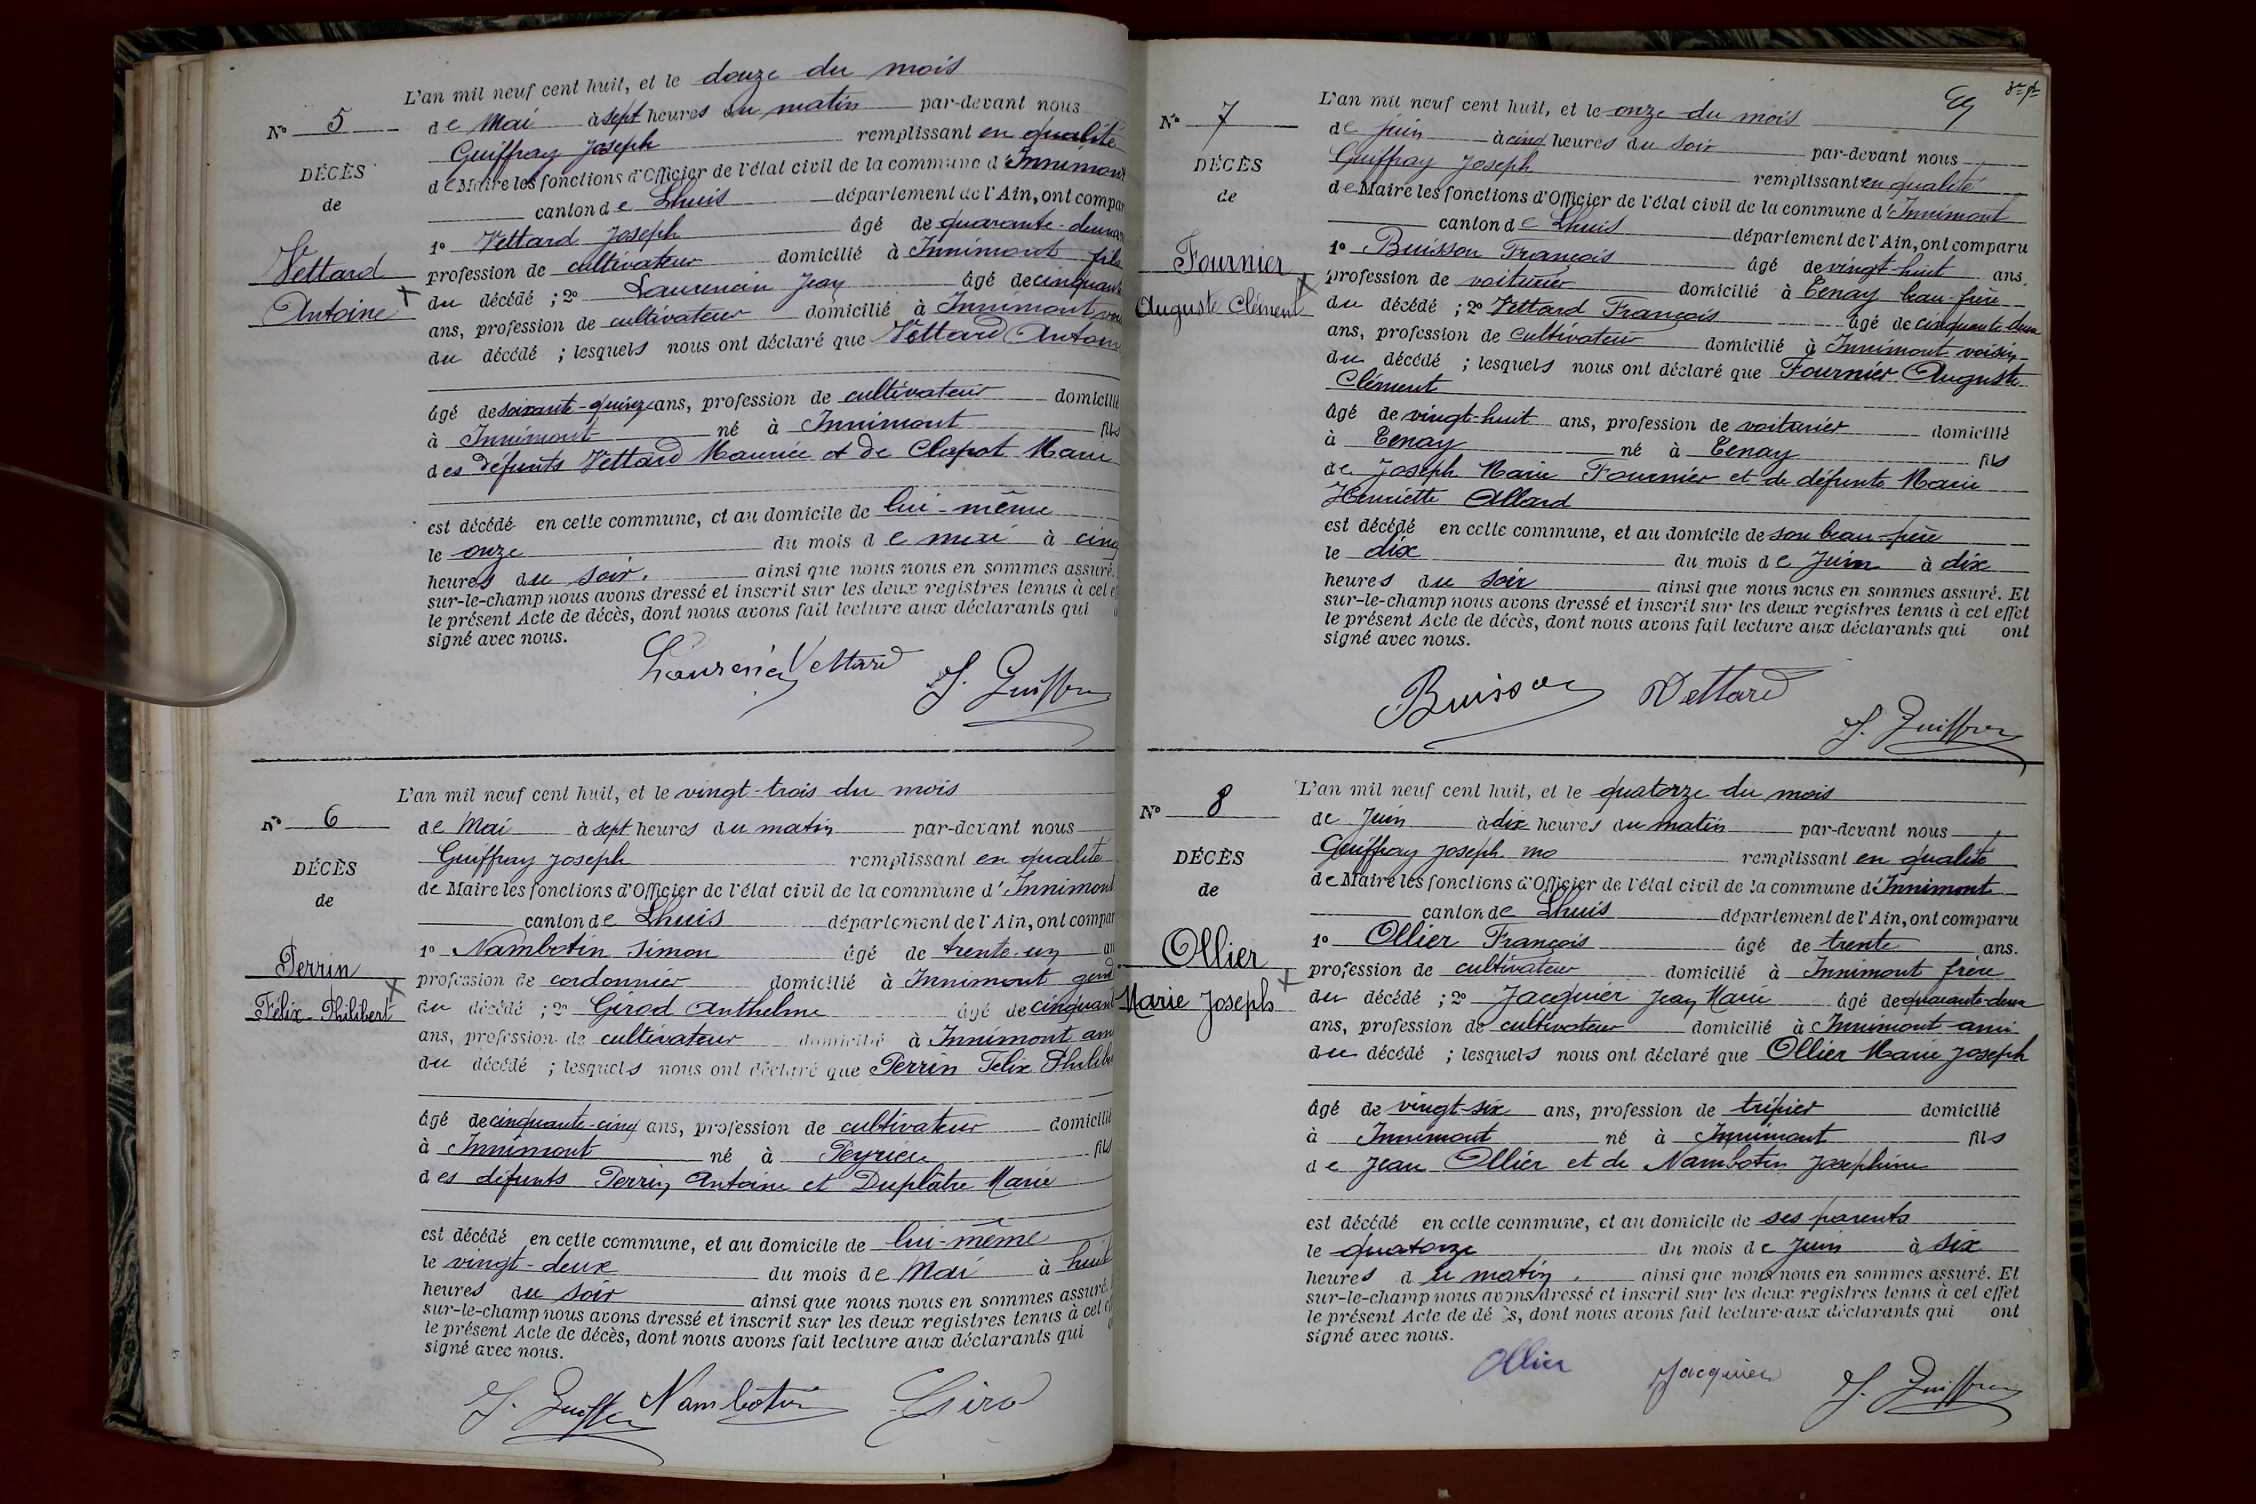 L'an mil neuf cent huit, et le douze du mois
N° 5
de Mai à sept heures du matin par-devant nous
Guiffray Joseph remplissant en qualité
DÉCÈS
de Maire les fonctions d'Officier de l'état civil de la commune d'Innimont
de
canton de Lhuis département de l'Ain, ont compar
1° Vettard Joseph âgé de quarante-deux
Vettard
profession de cultivateur domicilié à Innimont fils
Antoine
du décédé ; 2° Laurencin Jean âgé de cinquante
ans, profession de cultivateur domicilié à Innimont
du décédé ; lesquels nous ont déclaré que Vettard Antoine
âgé de soixante-quinze ans, profession de cultivateur domicilié
à Innimont né à Innimont fils
des défunts Vettard Maurice et de Clapot Marie
est décédé en cette commune, et au domicile de lui-même
le onze du mois de mai à cinq
heures du soir. ainsi que nous nous en sommes assuré.
sur-le-champ nous avons dressé et inscrit sur les deux registres tenus à cet ef
le présent Acte de décès, dont nous avons fait lecture aux déclarants qui
signé avec nous.
Laurencin Vettard J. Guiffray
L'an mil neuf cent huit, et le vingt-trois du mois
N° 6
de Mai à sept heures du matin par-devant nous
Guiffray Joseph remplissant en qualité
DÉCÈS
de Maire les fonctions d'Officier de l'état civil de la commune d'Innimont
de
canton de Lhuis département de l'Ain, ont compar
1° Nambotin Simon âgé de trente-un an
Perrin
profession de cordonnier domicilié à Innimont gend
Félix Philibert
du décédé ; 2° Girod Anthelme âgé de cinquant
ans, profession de cultivateur domicilié à Innimont ami
du décédé ; lesquels nous ont déclaré que Perrin Félix Philibe
âgé de cinquante-cinq ans, profession de cultivateur domicilié
à Innimont né à Peyrieu fils
des défunts Perrin Antoine et Duplâtre Marie
est décédé en cette commune, et au domicile de lui-même
le vingt-deux du mois de Mai à huit
heures du soir ainsi que nous nous en sommes assuré.
sur-le-champ nous avons dressé et inscrit sur les deux registres tenus à cet ef
le présent Acte de décès, dont nous avons fait lecture aux déclarants qui
signé avec nous.
J. Guiffray Nambotin Giro
L'an mil neuf cent huit, et le onze du mois
N° 7
de juin à cinq heures du soir par-devant nous
Guiffray Joseph remplissant en qualité
DÉCÈS
de Maire les fonctions d'Officier de l'état civil de la commune d'Innimont
de
canton de Lhuis département de l'Ain, ont comparu
1° Buisson François âgé de vingt-huit ans.
Fournier
profession de voiturier domicilié à Tenay beau-frère
Auguste Clément
du décédé ; 2° Vettard François âgé de cinquante-deux
ans, profession de cultivateur domicilié à Innimont voisin
du décédé ; lesquels nous ont déclaré que Fournier Auguste
Clément
âgé de vingt-huit ans, profession de voiturier domicilié
à Tenay né à Tenay fils
de Joseph Marie Fournier et de défunte Marie
Henriette Allard
est décédé en cette commune, et au domicile de son beau-père
le dix du mois de Juin à dix
heures du soir ainsi que nous nous en sommes assuré. Et
sur-le-champ nous avons dressé et inscrit sur les deux registres tenus à cet effet
le présent Acte de décès, dont nous avons fait lecture aux déclarants qui ont
signé avec nous.
Buisson Vettard J. Guiffray
L'an mil neuf cent huit, et le quatorze du mois
N° 8
de Juin à dix heures du matin par-devant nous
Guiffray Joseph mo remplissant en qualité
DÉCÈS
de Maire les fonctions d'Officier de l'état civil de la commune d'Innimont
de
canton de Lhuis département de l'Ain, ont comparu
1° Ollier François âgé de trente ans.
Ollier
profession de cultivateur domicilié à Innimont frère
Marie Joseph
du décédé ; 2° Jacquier Jean Marie âgé de quarante-deux
ans, profession de cultivateur domicilié à Innimont ami
du décédé ; lesquels nous ont déclaré que Ollier Marie Joseph
âgé de vingt-six ans, profession de tripier domicilié
à Innimont né à Innimont fils
de Jean Ollier et de Nambotin Josephine
est décédé en cette commune, et au domicile de ses parents
le quatorze du mois de Juin à six
heures du matin. ainsi que nous nous en sommes assuré. Et
sur-le-champ nous avons dressé et inscrit sur les deux registres tenus à cet effet
le présent Acte de dé s, dont nous avons fait lecture aux déclarants qui ont
signé avec nous.
Ollier Jacquier J. Guiffray